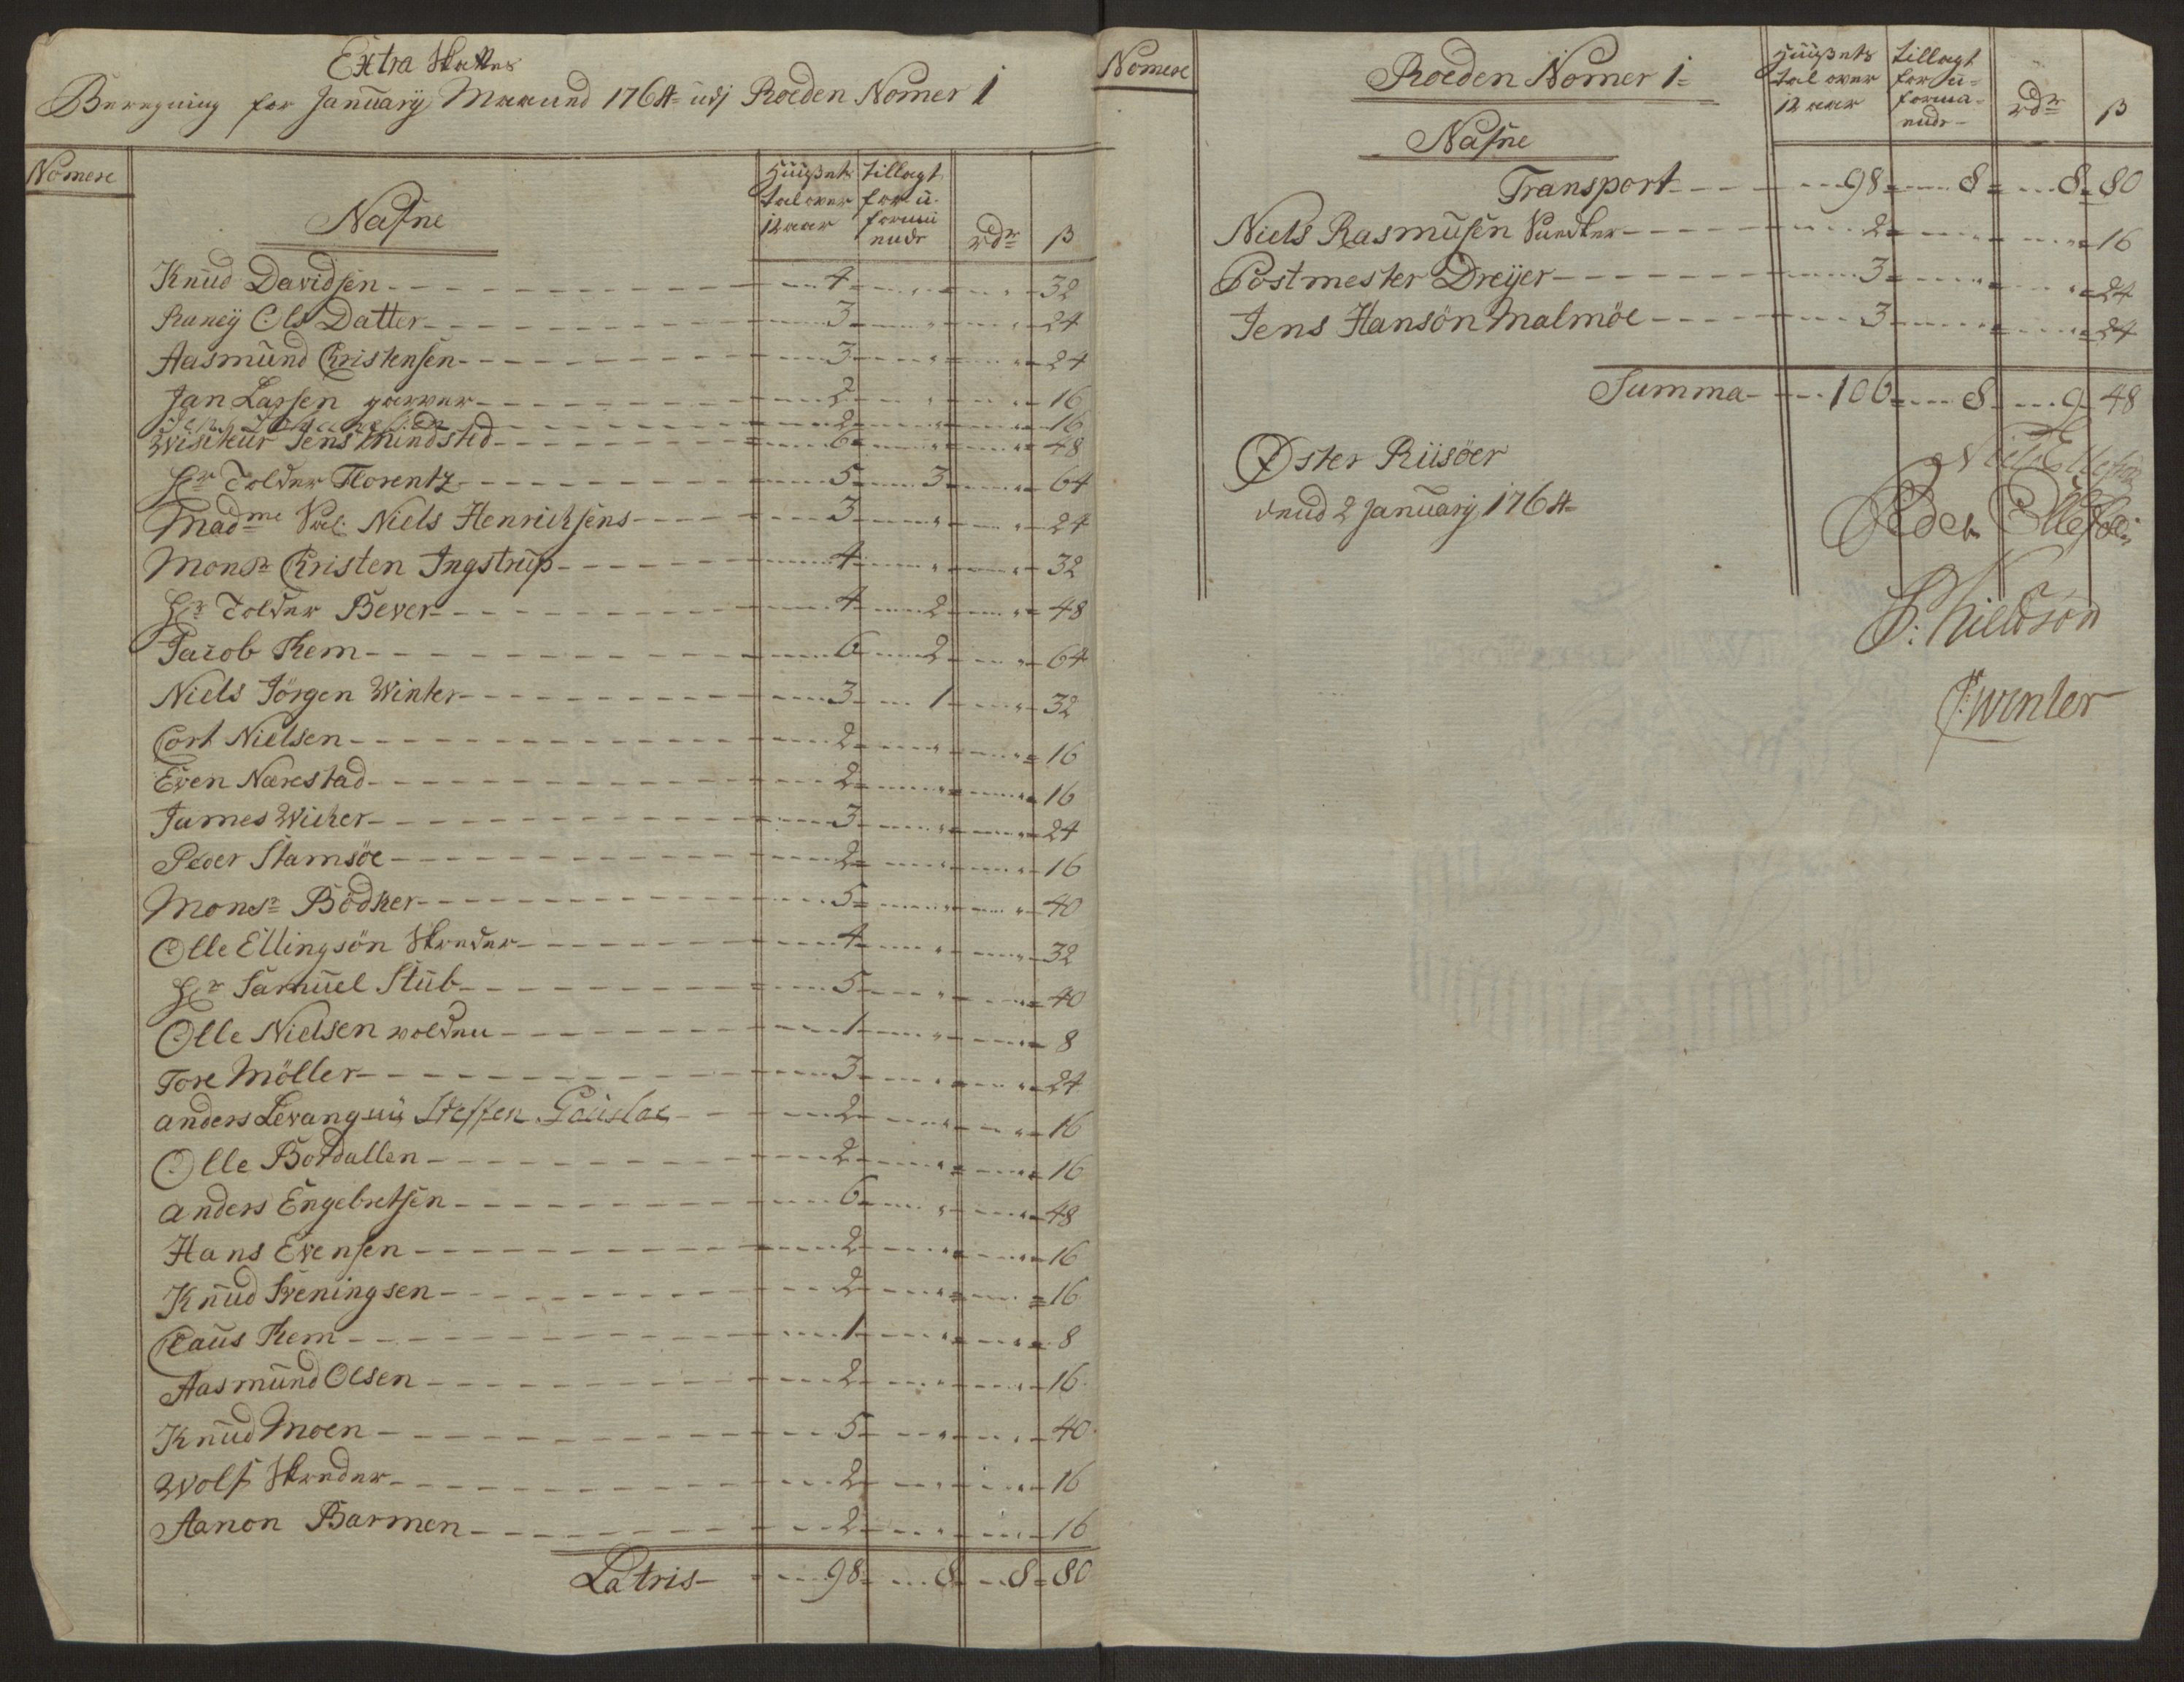 Extra Skattes
Beregning for Januarÿ Maaned 1764 udj Roeden Nomer 1
Nomere
Nafne
Huusets tal over 12 aar
tillagt for u- formu ende
rdr
β
Knud Davidsen 4 " " 32
Raneÿ Ols Datter 3 " " 24
Aasmund Christensen 3 " " 24
Jan Lassen garver 2 " " 16
2 " " 16
Visiteur Jens Thindsted 6 " " 48
Hr Tolder Florentz 5 3 " 64
Madme Sal: Niels Henrichsens 3 " " 24
Monsr Christen Ingstrup 4 " " 32
Hr Tolder Bever 4 2 " 48
Jacob Kem 6 2 " 64
Niels Jörgen Winter 3 1 " 32
Cort Nielsen 2 " " 16
Even Narestad 2 " " 16
James Wicher 3 " " 24
Peder Stamsöe 2 " " 16
Monsr Bödker 5 " " 40
Olle Ellingsön Skreder 4 " " 32
Hr Samuel Stub 5 " " 40
Olle Nielsen volden 1 " " 8
Tore Möller 3 " " 24
Anders Levang nu Steffen Gouslae 2 " " 16
Olle Bordallen 2 " " 16
Anders Engebretsen 6 " " 48
Hans Evensen 2 " " 16
Knud Sveningsen 2 " " 16
Claus Kem 1 " " 8
Aasmund Olsen 2 " " 16
Knud Moen 5 " " 40
Wolf Skreder 2 " " 16
Aanon Barmen 2 " " 16
Latris 98 8 8 80
Nomere
Roeden Nomer 1
Nafne
Huusets tal over 12 aar
tillagt for u- forma- ende
rdr
β
Transport 98 8 8 80
Niels Rasmusen 2 " " 16
Postmester Dreÿer 3 " " 24
Jens Hansön Malmöe 3 " " 24
Summa 106 8 9 48
Øster Riisöer
dend 2 Januarÿ 1764
Peder Ellefsen
Winter